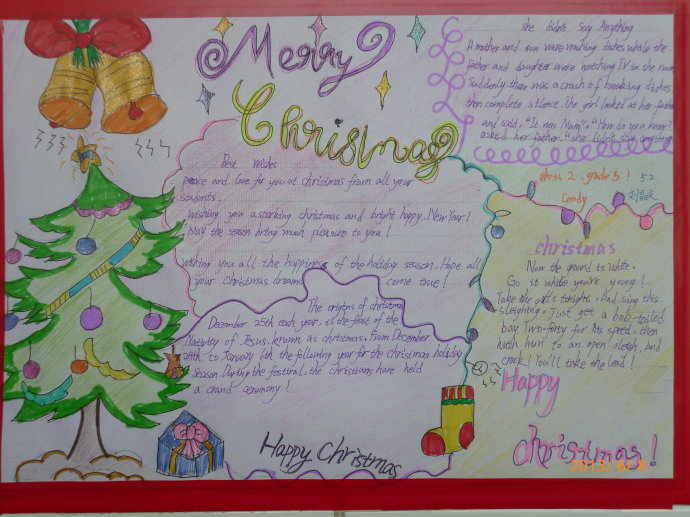 Merry
Christmas
she didn't Say Anything
A mother and son were washing dishes while the
father and daughter were watching TV in the room.
Suddenly there was a crash of breaking dishes.
then complete silence. the girl looked at her father
and said, "It was Mum". "How do you know?"
asked her father. "she didn't say anything
class 2, grade 5! 5.2
Candy
Best Wishes
peace and love for you at christmas from all your
students.
wishing you a sparking christmas and bright happy New Year!
May the season bring much pleasure to you!
wishing you all the happiness of the holiday season. Hope all
your Christmas dreams come true!
The origins of christmas
December 25th each year, is the feast of the
Nativity of Jesus, known as christmas. From December
24th to January 6th the following year for the christmas holiday
season. During the festival, the christians have held
a grand ceremony!
christmas
Now the ground is white.
Go it while you're young!
Take the girls tonight. And sing this
sleighing. Just get a bob-tailed
bay Two-forty for his speed. then
hitch him to an open sleigh, and
crack! You'll take the lead!
Happy
christmas!
Happy Christmas